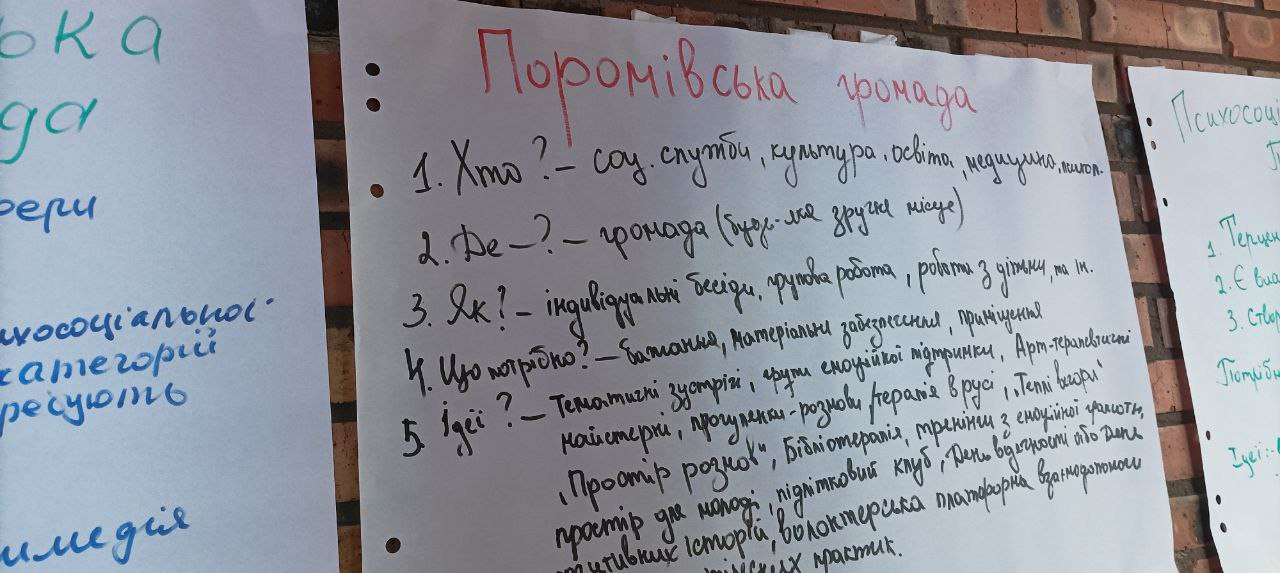 ька
да
фери
ихосоціальної
категорій
ресують
имедія
Поромівська громада
1. Хто? – соц. служби, культура, освіта, медицина, психол.
2. Де –? – громада (будь-яке зручне місце)
3. Як? – індивідуальні бесіди, групова робота, робота з дітьми, та ін.
4. Що потрібно? – бажання, матеріальне забезпечення, приміщення
5. Ідеї? – Тематичні зустрічі, групи емоційної підтримки, Арт-терапевтичні
майстерні, прогулянки-розмови/терапія в русі, „Теплі вечори"
„Простір розмов", Бібліотерапія, тренінги з емоційної грамотн,
простір для молоді, підлітковий клуб, День вдячності або День
позитивних історій, волонтерська платформа взаємодопомоги
практик.
Психосоці
П
1. Терцен
2. Є
3. Створ
Потрібн
Ідеї: